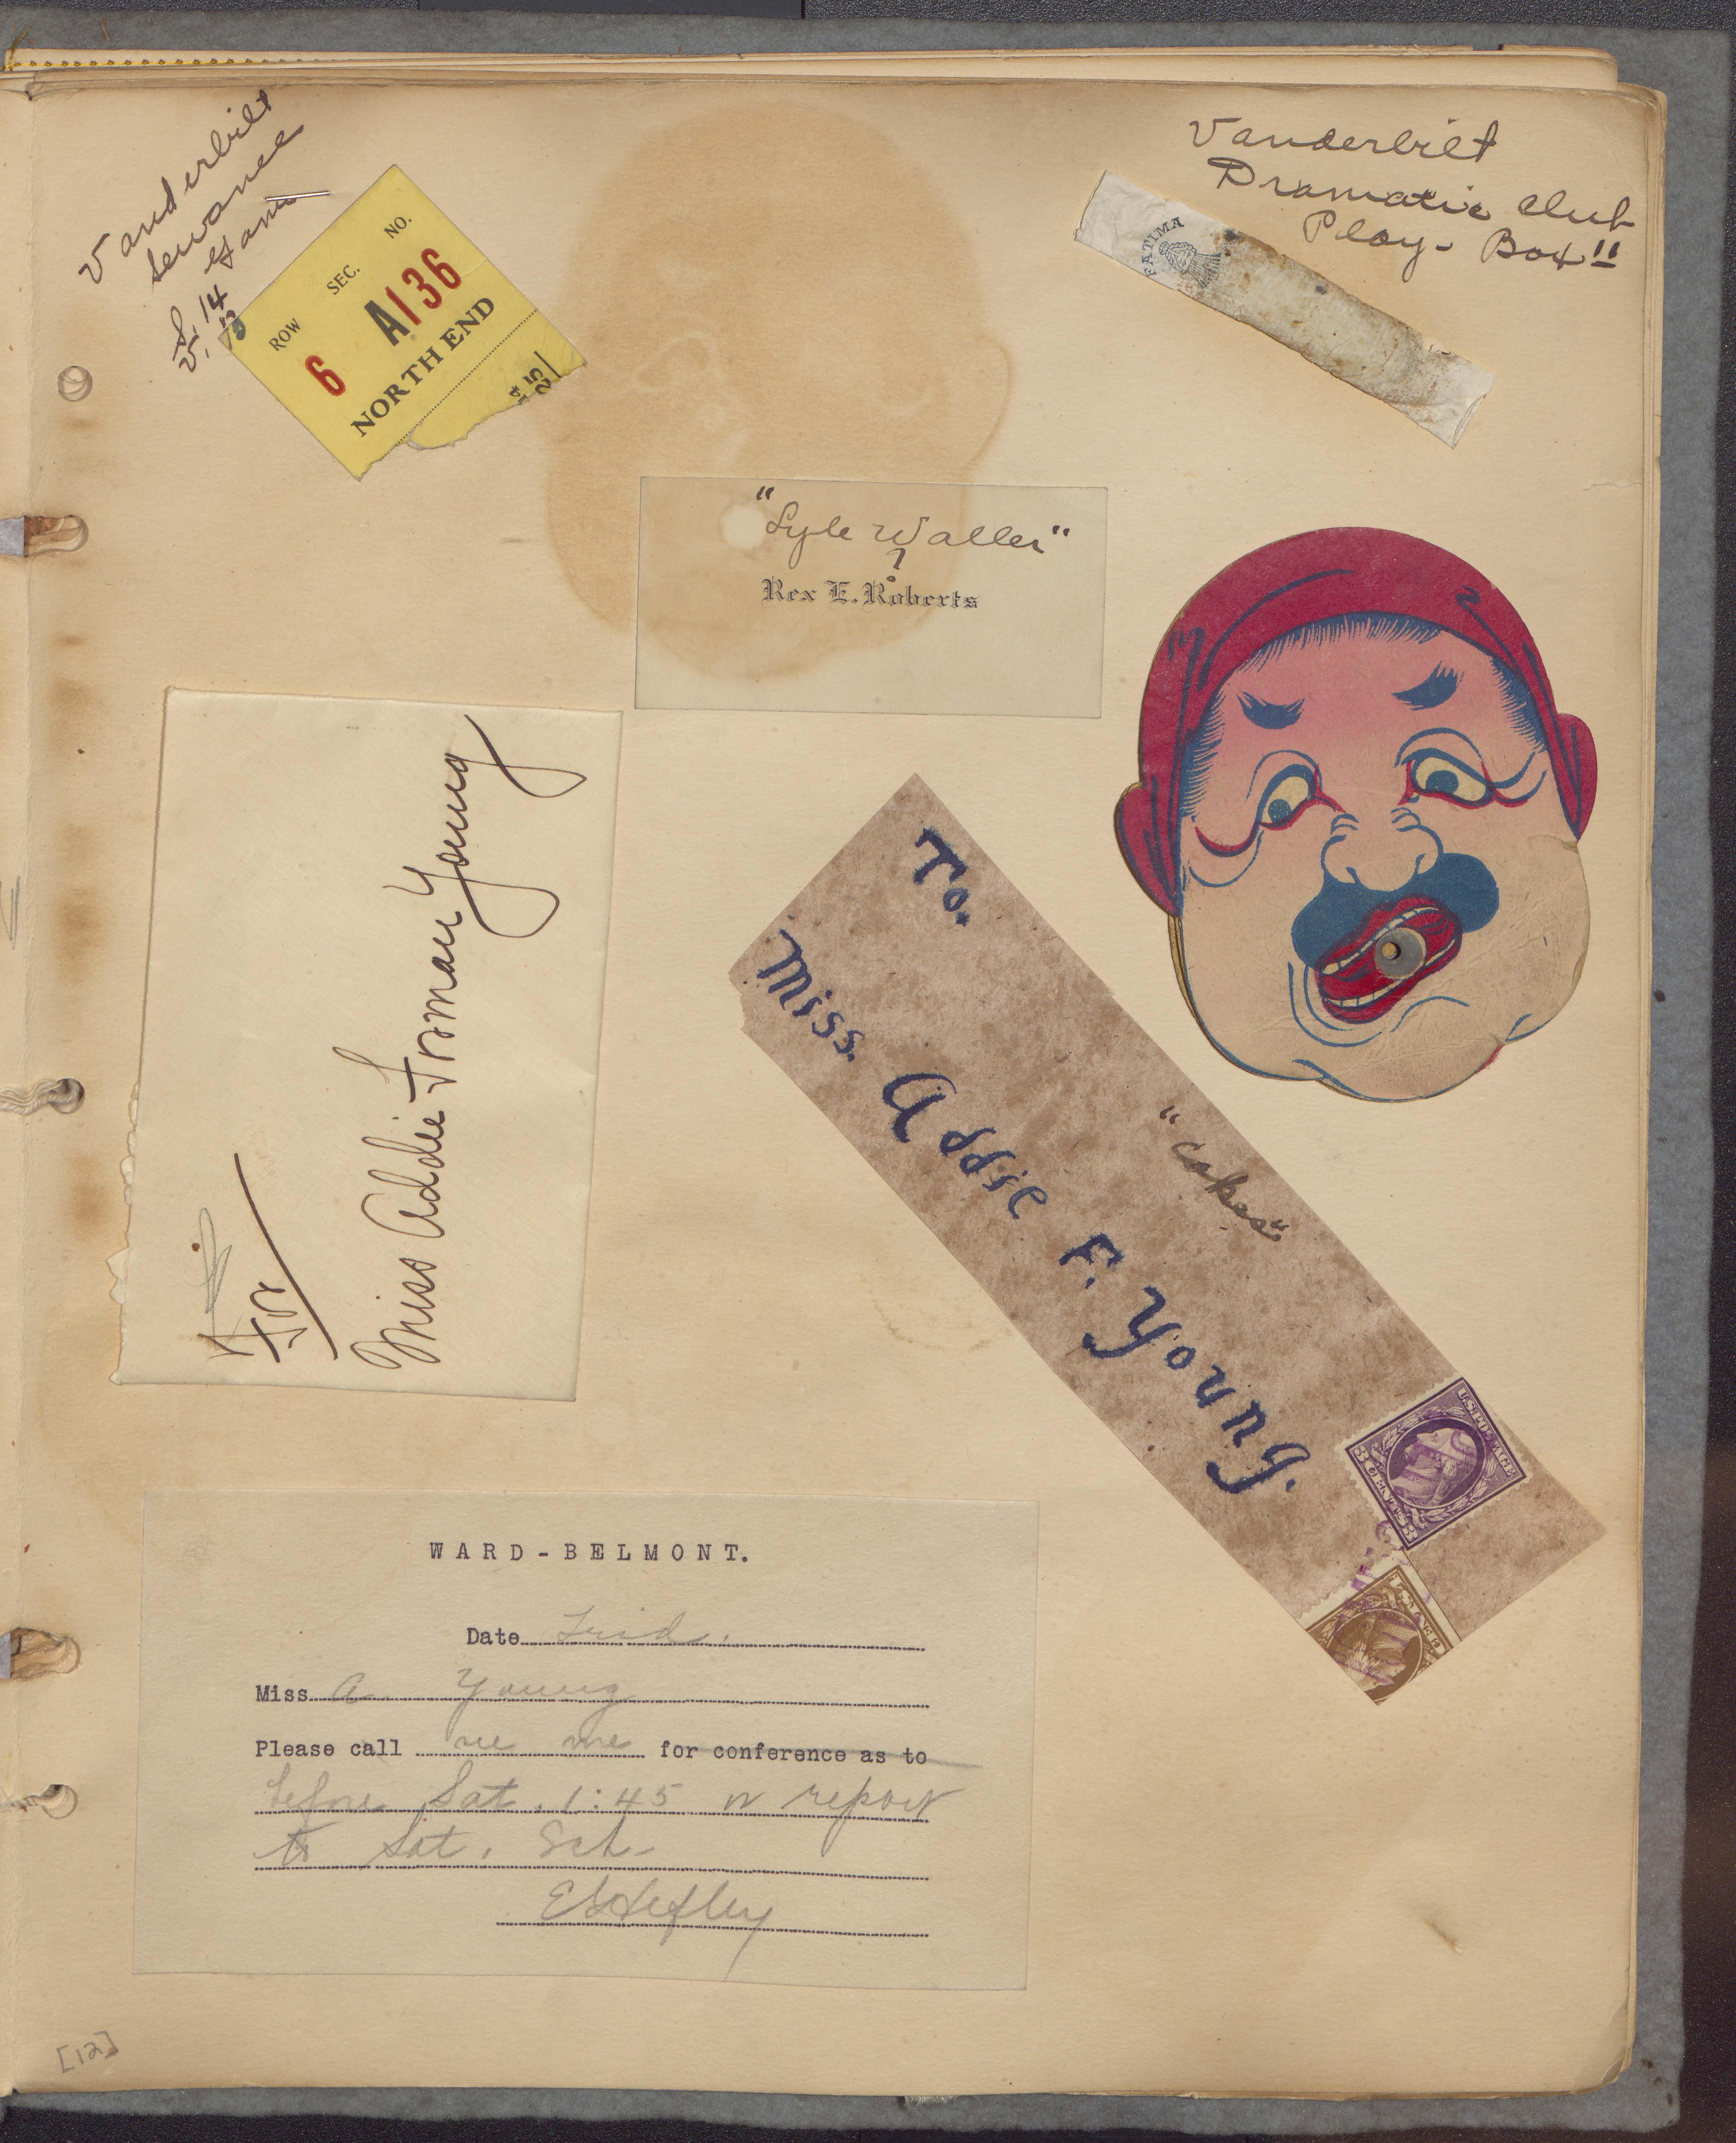 Vanderbilt
Sewanee
Game
V. 14
ROW
SEC.
NO.
6
A136
NORTH END
Vanderbilt
Dramatic Club
Play- Box"
FATIMA
"Lyle Waller"
?
Rex E. Roberts
For
Miss Addie Foman Young
To.
Miss. Addie F. Young.
"Cakes"
U.S. POSTAGE
3 CENTS 3
WARD-BELMONT.
Date Frid.
Miss A Young
Please call see me for conference as to
before Sat. 1:45 or report
to Sat. Sch.
[12]